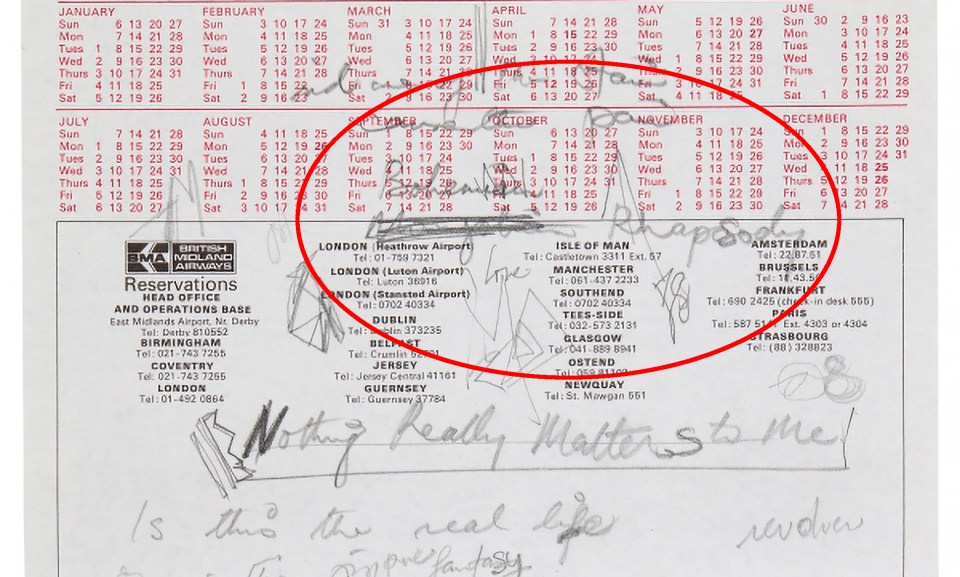 JANUARY FEBRUARY MARCH APRIL MAY JUNE
Sun 6 13 20 27 Sun 3 10 17 24 Sun 31 3 10 17 24 Sun 7 14 21 28 Sun 5 12 19 26 Sun 30 2 9 16 23
Mon 7 14 21 28 Mon 4 11 18 25 Mon 4 11 18 25 Mon 1 8 15 22 29 Mon 6 13 20 27 Mon 3 10 17 24
Tues 1 8 15 22 29 Tues 5 12 19 26 Tues 5 12 19 26 Tues 2 9 16 23 30 Tues 7 14 21 28 Tues 4 11 18 25
Wed 2 9 16 23 30 Wed 6 13 20 27 Wed 6 13 20 27 Wed 3 10 17 24 Wed 1 8 15 22 29 Wed 5 12 19 26
Thurs 3 10 17 24 31 Thurs 7 14 21 28 Thurs 7 14 21 28 Thurs 4 11 18 25 Thurs 2 9 16 23 30 Thurs 6 13 20 27
Fri 4 11 18 25 Fri 1 8 15 22 Fri 1 8 15 22 29 Fri 5 12 19 26 Fri 3 10 17 24 31 Fri 7 14 21 28
Sat 5 12 19 26 Sat 2 9 16 23 Sat 2 9 16 23 30 Sat 6 13 20 27 Sat 4 11 18 25 Sat 1 8 15 22 29
JULY AUGUST SEPTEMBER OCTOBER NOVEMBER DECEMBER
Sun 7 14 21 28 Sun 4 11 18 25 Sun 1 8 15 22 29 Sun 6 13 20 27 Sun 3 10 17 24 Sun 1 8 15 22 29
Mon 1 8 15 22 29 Mon 5 12 19 26 Mon 2 9 16 23 30 Mon 7 14 21 28 Mon 4 11 18 25 Mon 2 9 16 23 30
Tues 2 9 16 23 30 Tues 6 13 20 27 Tues 3 10 17 24 Tues 1 8 15 22 29 Tues 5 12 19 26 Tues 3 10 17 24 31
Wed 3 10 17 24 31 Wed 7 14 21 28 Wed 4 11 18 25 Wed 2 9 16 23 30 Wed 6 13 20 27 Wed 4 11 18 25
Thurs 4 11 18 25 Thurs 1 8 15 22 29 Thurs 5 12 19 26 Thurs 3 10 17 24 31 Thurs 7 14 21 28 Thurs 5 12 19 26
Fri 5 12 19 26 Fri 2 9 16 23 30 Fri 6 13 20 27 Fri 4 11 18 25 Fri 1 8 15 22 29 Fri 6 13 20 27
Sat 6 13 20 27 Sat 3 10 17 24 31 Sat 7 14 21 28 Sat 5 12 19 26 Sat 2 9 16 23 30 Sat 7 14 21 28
Bohemian
Rhapsody
BMA BRITISH MIDLAND AIRWAYS
Reservations
HEAD OFFICE
AND OPERATIONS BASE
East Midlands Airport, Nr. Derby
Tel: Derby 810552
BIRMINGHAM
Tel: 021-743 7255
COVENTRY
Tel: 021-743 7255
LONDON
Tel: 01-492 0864
LONDON (Heathrow Airport)
Tel: 01-759 7321
LONDON (Luton Airport)
Tel: Luton 36916
LONDON (Stansted Airport)
Tel: 0702 40334
DUBLIN
Tel: Dublin 373235
BELFAST
Tel: Crumlin
JERSEY
Tel: Jersey Central 41161
GUERNSEY
Tel: Guernsey 37784
Love
ISLE OF MAN
Tel: Castletown 3311 Ext. 57
MANCHESTER
Tel: 061-437 2233
SOUTHEND
Tel: 0702 40334
TEES-SIDE
Tel: 032-573 2131
GLASGOW
Tel: 041-889 8941
OSTEND
Tel: 059
NEWQUAY
Tel: St. Mawgan 551
AMSTERDAM
Tel: 22.87.61
BRUSSELS
Tel: 11.43.5
FRANKFURT
Tel: 690 2425 (check-in desk 555)
PARIS
Tel: 587 Ext. 4303 or 4304
STRASBOURG
Tel: (88) 328823
Nothing Really Matters to Me
Is this the real life
fantasy